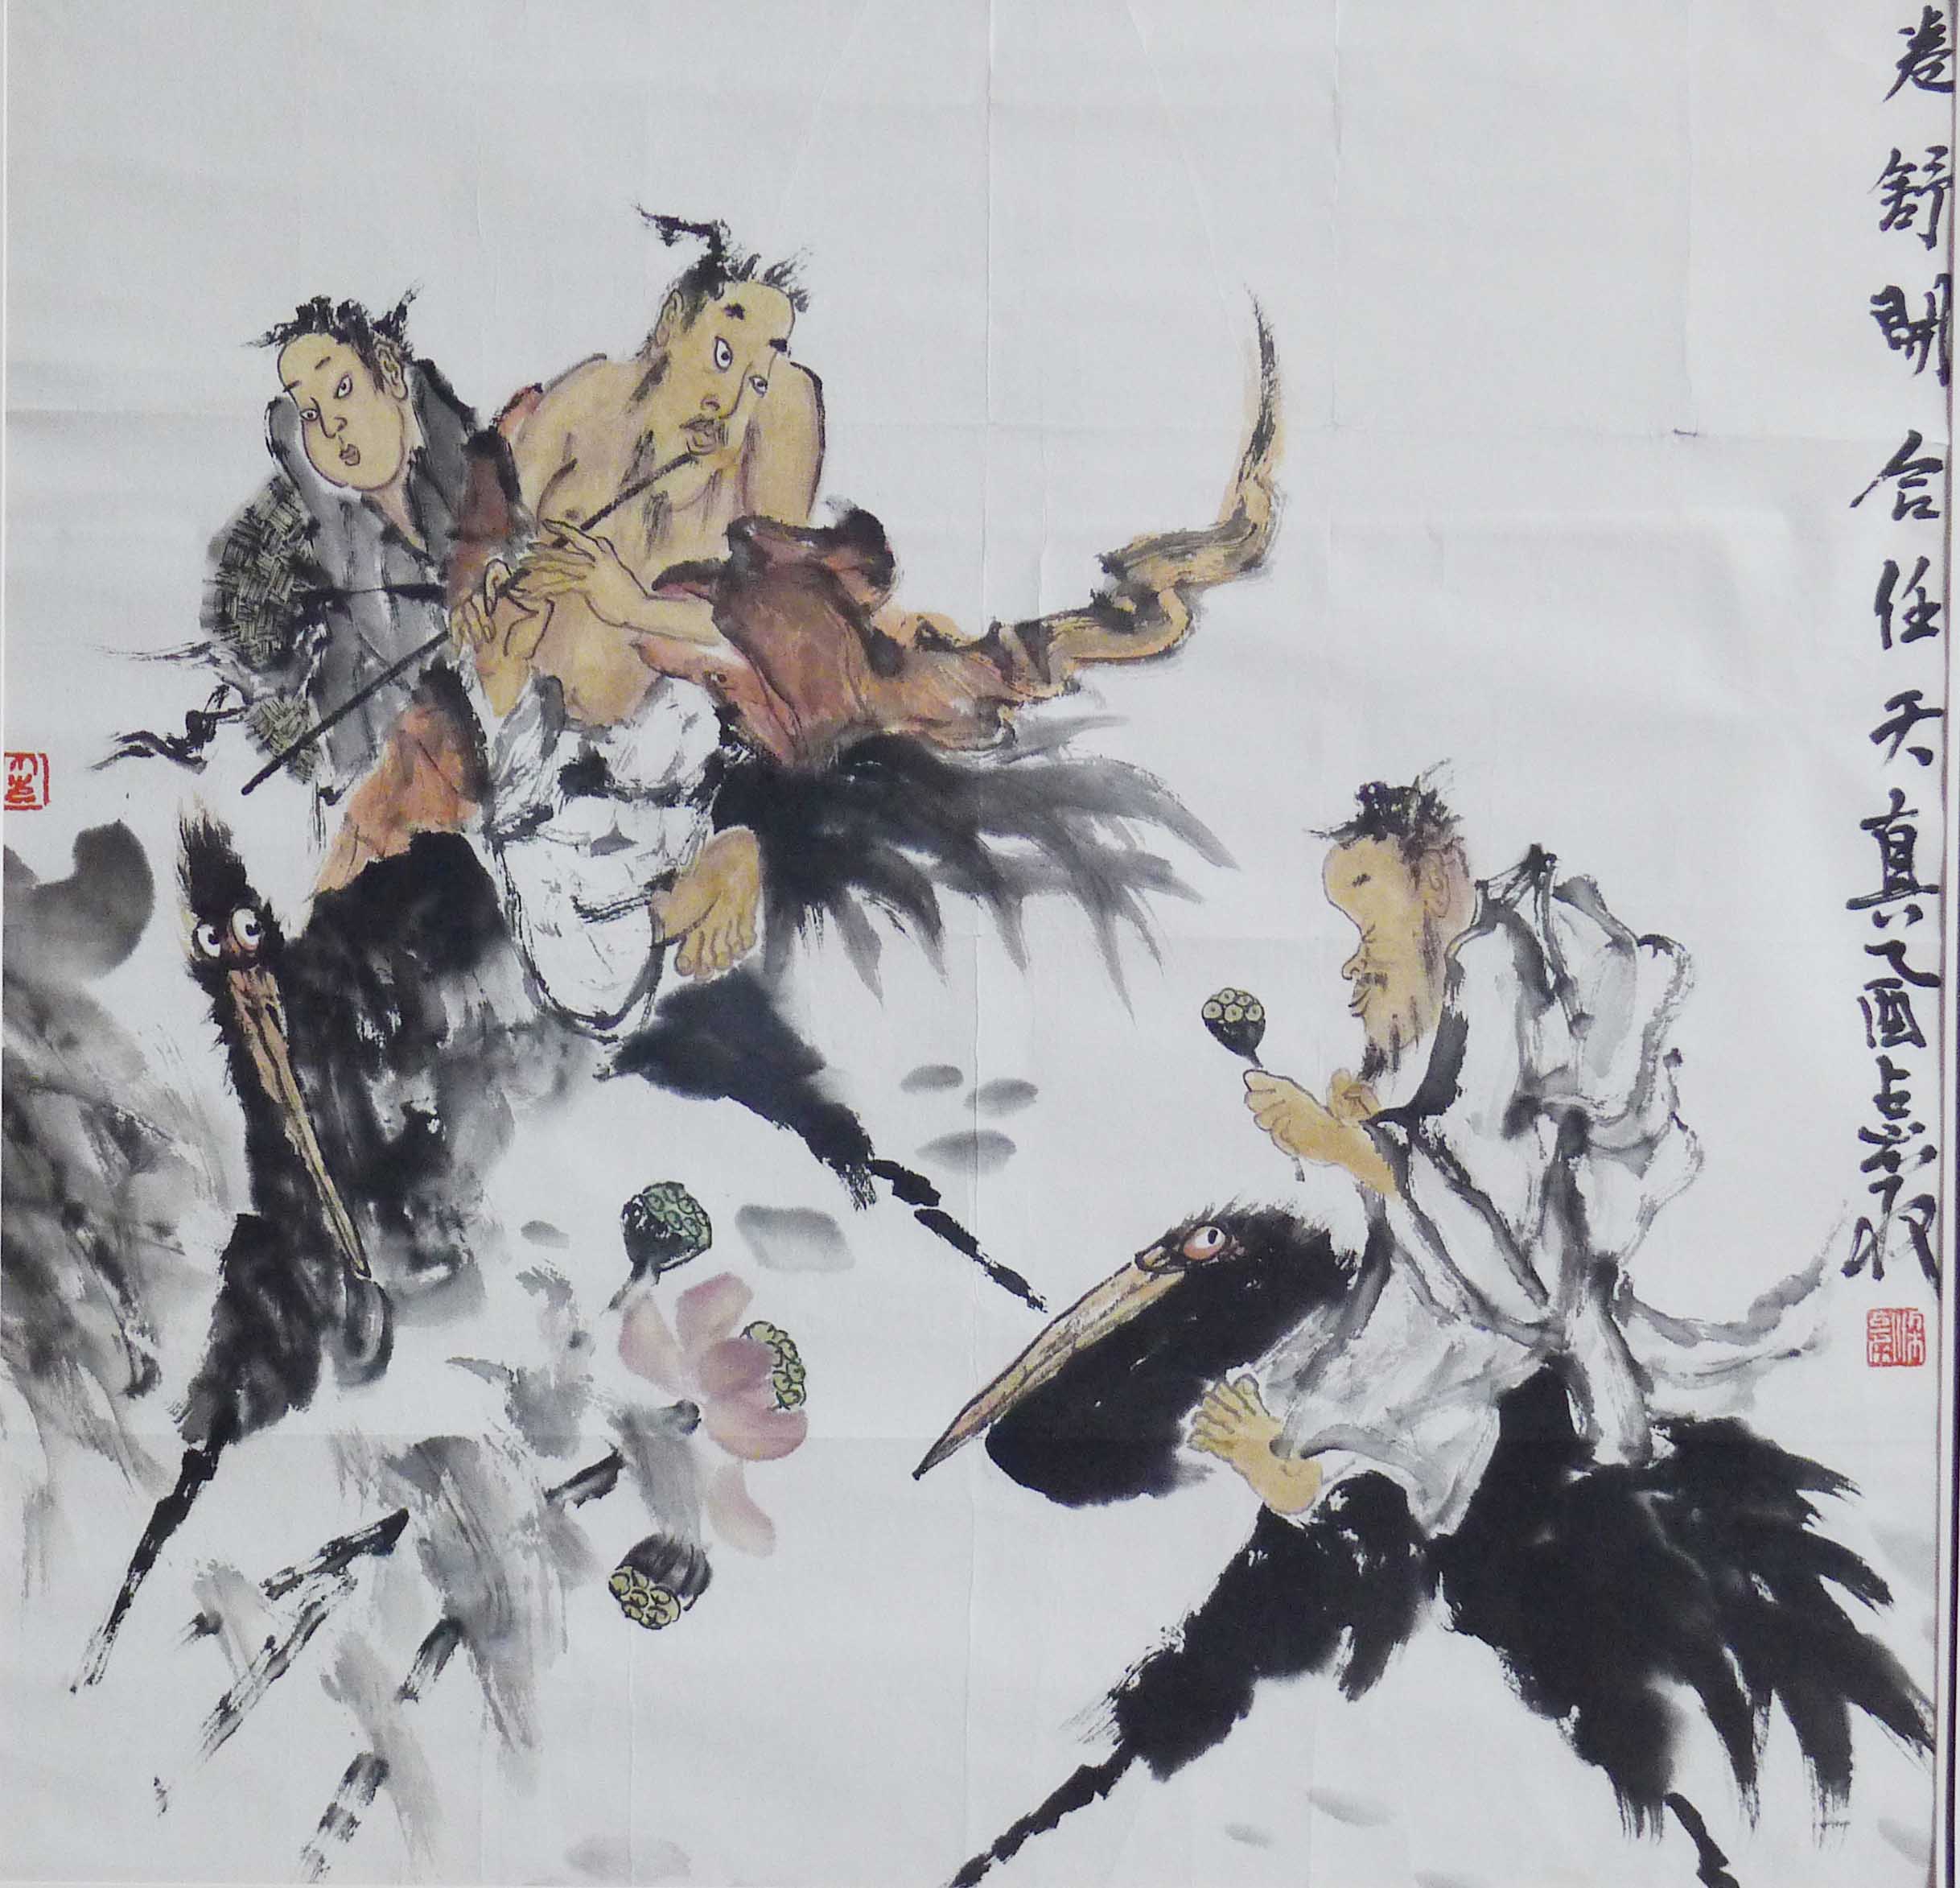 卷舒開合任天真乙酉占景收